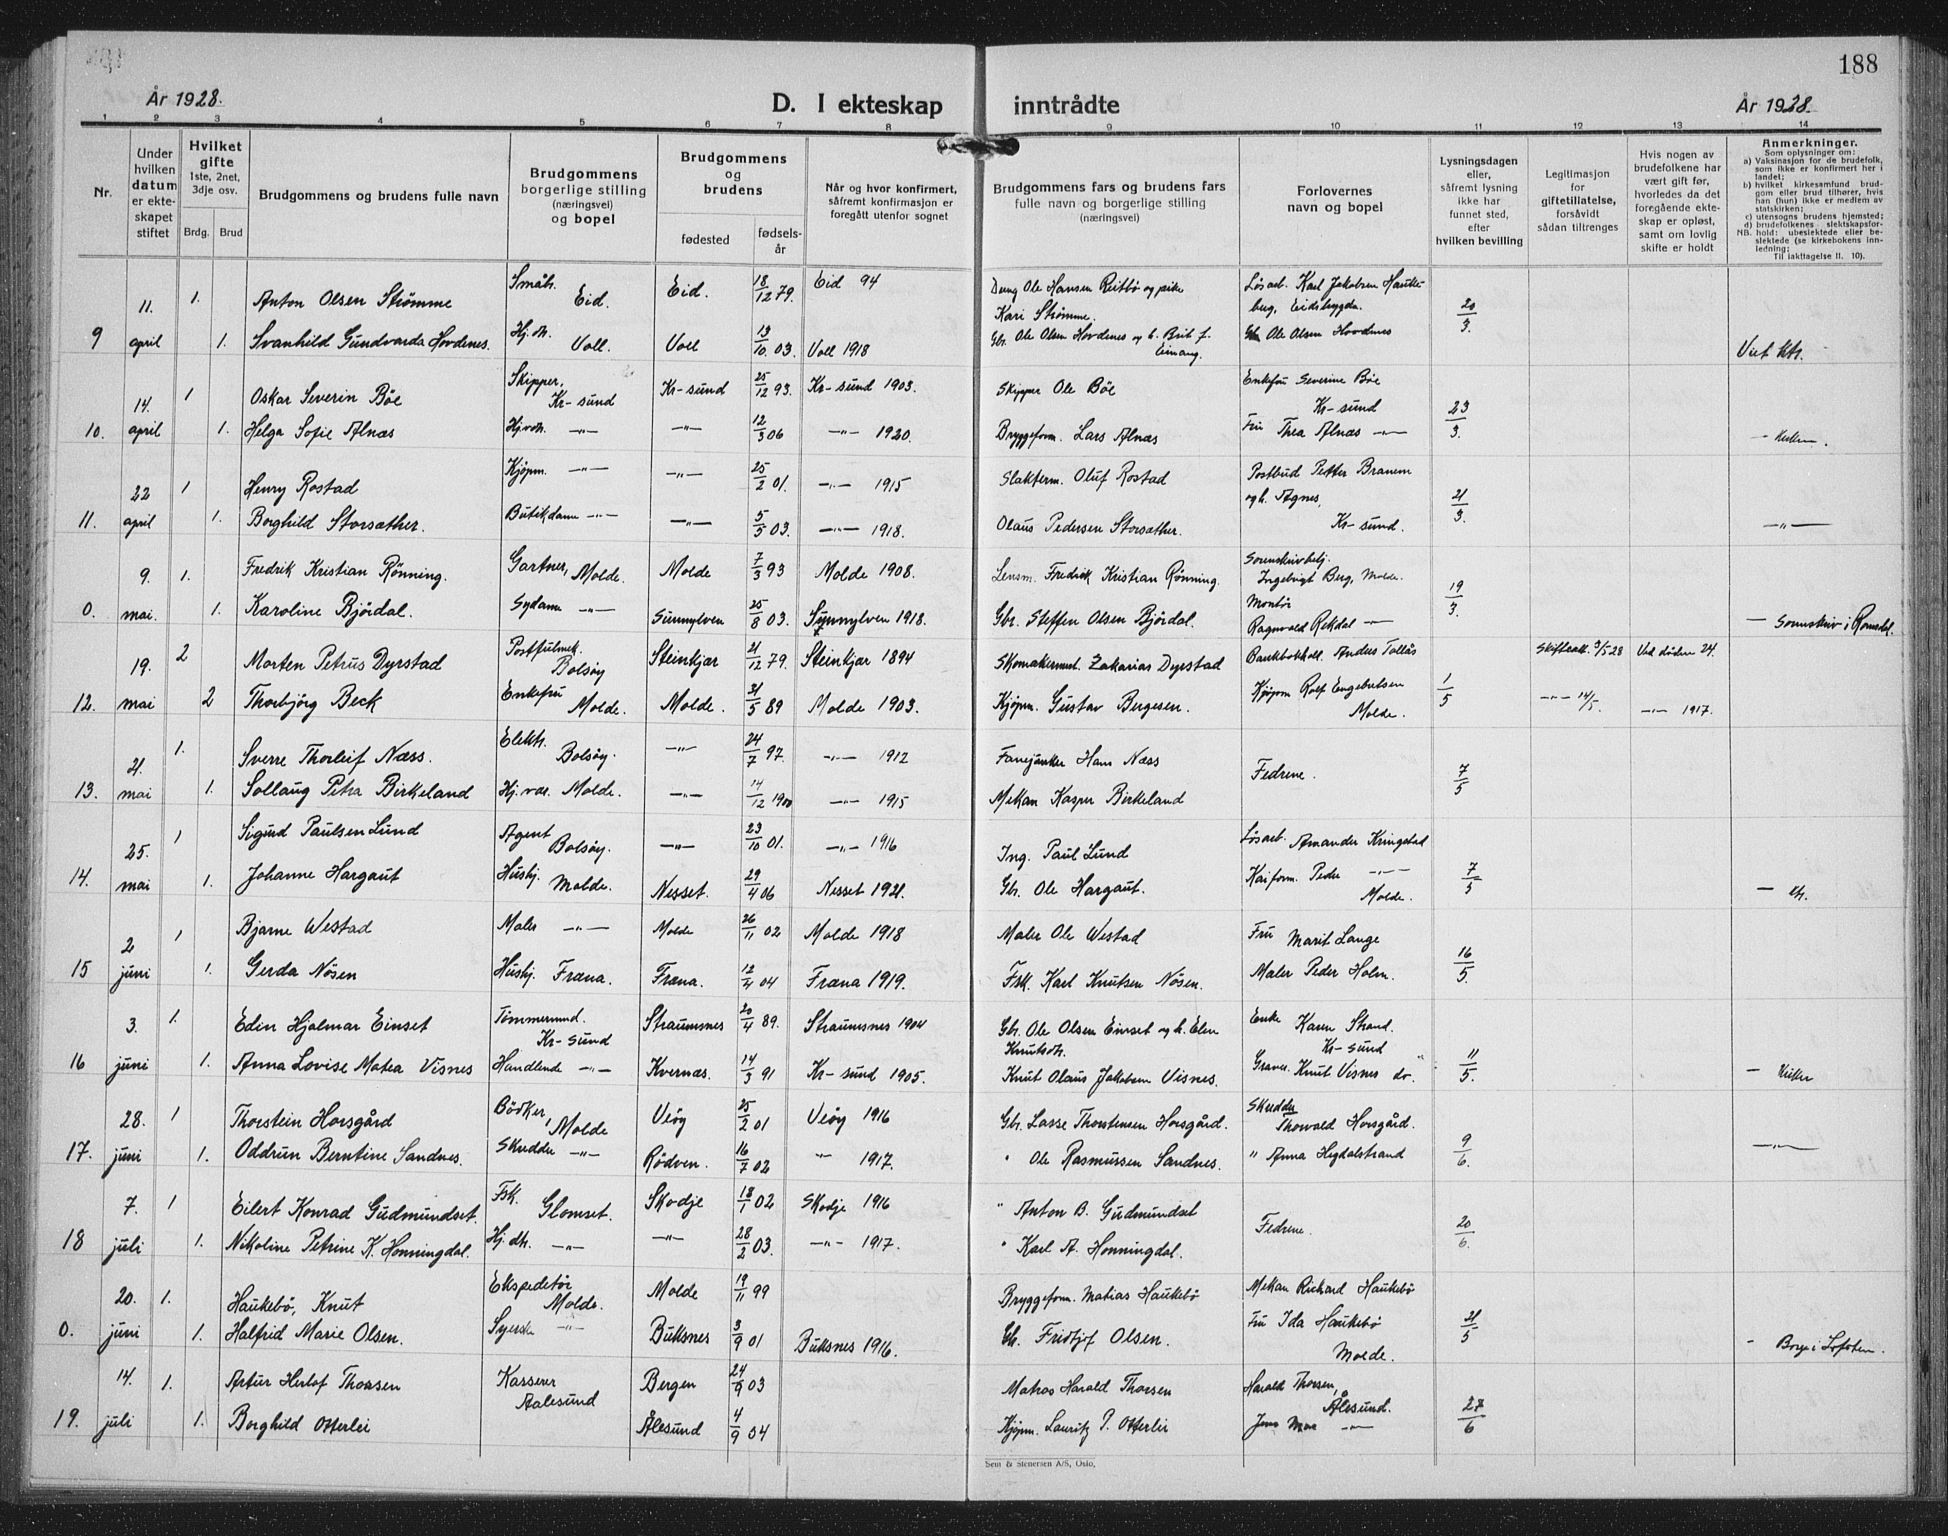 188
År 1928.
D. I ekteskap inntrådte
År 1928.
1 2 3 4 5 6 7 8 9 10 11 12 13 14
Nr.
Under hvilken datum er ekteskapet stiftet
Hvilket gifte 1ste, 2net, 3dje osv.
Brdg. Brud
Brudgommens og brudens fulle navn
Brudgommens borgerlige stilling (næringsvei) og bopel
Brudgommens og brudens
fødested
fødselsår
Når og hvor konfirmert, såfremt konfirmasjon er foregått utenfor sognet
Brudgommens fars og brudens fars fulle navn og borgerlige stilling (næringsvei)
Forlovernes navn og bopel
Lysningsdagen eller, såfremt lysning ikke har funnet sted, efter hvilken bevilling
Legitimasjon for giftetillatelse, forsåvidt sådan tiltrenges
Hvis nogen av brudefolkene har vært gift før, hvorledes da det foregående ekteskap er opløst, samt om lovlig skifte er holdt
Anmerkninger.
Som oplysninger om:
a) Vaksinasjon for de brudefolk, som ikke er konfirmert her i landet;
b) hvilket kirkesamfund brudgom eller brud tilhører, hvis han (hun) ikke er medlem av statskirken;
c) utensogns brudens hjemsted;
d) brudefolkenes slektskapsforhold: ubeslektede eller beslektede (se kirkebokens innledning;
NB. Til iakttagelse II. 10).
11. 1. Anton Olsen Strømme Småb. Eid. Eid. 18/12 79. Eid 94 Dreng Ole Hansen Reitbø og pike Kari Strømme. Løsarb. Karl Jakobsen Haukeberg, Eidsbygda. 20/3.
9 april 1. Svanhild Gundvarda Hovdenes. Hj. dtr. Voll. Voll 13/10 03. Voll 1918 Gbr. Ole Olsen Hovdenes og h. Brit f. Eimang. Gbr Ole Olsen Hovdenes
14. 1 Oskar Severin Bøe Skipper, Kr-sund Kr-sund 25/12 93. Kr-sund 1903. Skipper Ole Bøe Enkefru Severine Bøe Kr-sund 23/3.
10. april 1. Helga Sofie Alnæs —"— —"— 12/3 06 —"— 1920. Bryggeform. Lars Alnæs Fru Thea Alnæs —"—
22 1 Henry Rostad Kjøpm. —"— —"— 25/2 01. —"— 1915 Slakterm. Oluf Rostad Postbud Petter Branem og h. Agnes, Kr-sund. 21/3.
11. april 1. Borghild Storsæther. Butikdame —"— —"— 5/5 03. —"— 1918. Olaus Pedersen Storsæther. —"—
9. 1. Fredrik Kristian Rønning. Gartner, Molde. Molde 7/3 93 Molde 1908. Lensm. Fredrik Kristian Rønning. Sorenskriverbetj. Ingebrigt Berg, Molde. 19/3.
0. mai. 1. Karoline Bjørdal. Sydame —"— Sunnylven 25/8 03. Sunnylven 1918. Gbr. Steffen Olsen Bjørdal. Montør Ragnvald Rekdal —"— — Sorenskriv i Romsdal.
19. 2 Morten Petrus Dyrstad Postfulmek. Bolsøy Steinkjær 21/12 79. Steinkjær 1894 Skomakermest. Zakarias Dyrstad Bankbokhold. Anders Tallås 1/5 Skifteatt. 3/5 28 Ved døden 24.
12. mai 2 Thorbjørg Beck Enkefru Molde. Molde. 31/5 89 Molde 1903. Kjøpm. Gustav Bergesen. Kjøpm Rolf Engebretsen Molde. —"— 14/5. —"— 1917.
21. 1. Sverre Thorleif Næss. Elektr. Bolsøy. —"— 24/7 97. —"— 1912 Fanejunker Hans Næss Fedrene. 7/5
13. mai 1. Sollaug Petra Birkeland Molde. —"— 14/12 1900 —"— 1915 Mekan Kasper Birkeland
25. 1 Sigurd Paulsen Lund Agent Bolsøy. —"— 23/10 01. —"— 1916 Ing. Paul Lund Løsarb. Amandus Kringstad 7/5
14. mai 1. Johanne Hargaut Hushj. Molde. Nesset. 29/4 06 Nesset 1921. Gbr. Ole Hargaut. Kaiform. Peder —"— Molde.
2 1 Bjarne Westad Maler —"— Molde 26/11 02 Molde 1918 Maler Ole Westad Fru Marit Lange 16/5.
15 juni 1. Gerda Nøsen Hushj. Fræna. Fræna. 12/4 04 Fræna 1919. Fsk. Karl Knutsen Nøsen. Maler Peder Holm.
3. 1. Edin Hjalmar Einset Tømmermand. Kr-sund Straumsnes 20/4 89. Straumsnes 1904 Gbr. Ole Olsen Einset og h. Elen Knutsdtr. Enke Karen Strand. Kr-sund 11/5.
16 juni 1. Anna Lovise Matea Visnes Handlende —"— Kvernæs. 14/3 91 Kr-sund 1905. Knut Olaus Jakobsen Visnes. Graver. Knut Visnes do.
28. 1 Thorstein Horsgård Bødker, Molde Veøy 25/2 01 Veøy 1916 Gbr. Lasse Thorstensen Horsgård. Skredder Thorvald Horsgård. 9/6.
17. juni 1. Oddrun Berntine Sandnes. Skredder —"— Rødven. 16/7 02 " 1917. " Ole Rasmussen Sandnes. " Anna Hegdalstrand —"—
7. 1 Eilert Konrad Gudmundset. Fsk. Glomset. Skodje 18/1 02 Skodje 1916 " Anton B. Gudmundset Fedrene. 20/6.
18 juli 1. Nikoline Petrine K. Honningdal. Hj. dtr. —"— —"— 28/2 03. —"— 1917. " Karl A. Honningdal.
20. 1. Haukebø, Knut Ekspeditør Molde. Molde 19/11 99 Bryggeform. Matias Haukebø Mekan Richard Haukebø 21/5
0. juni 1. Halfrid Marie Olsen. Syerske —"— Buksnes 3/9 01 Buksnes 1916. Gbr. Fridtjof Olsen. Fru Ida Haukebø Molde. — Borge i Lofoten.
14. 1. Artur Herlof Thorsen Kasserer Aalesund Bergen 24/9 03 Matros Harald Thorsen Harald Thorsen, Ålesund. 27/6
19. juli 1. Borghild Otterlei Ålesund 4/9 04 Kjøpm. Lauritz P. Otterlei Jens Moe —"—
Sem & Stenersen A/S, Oslo.